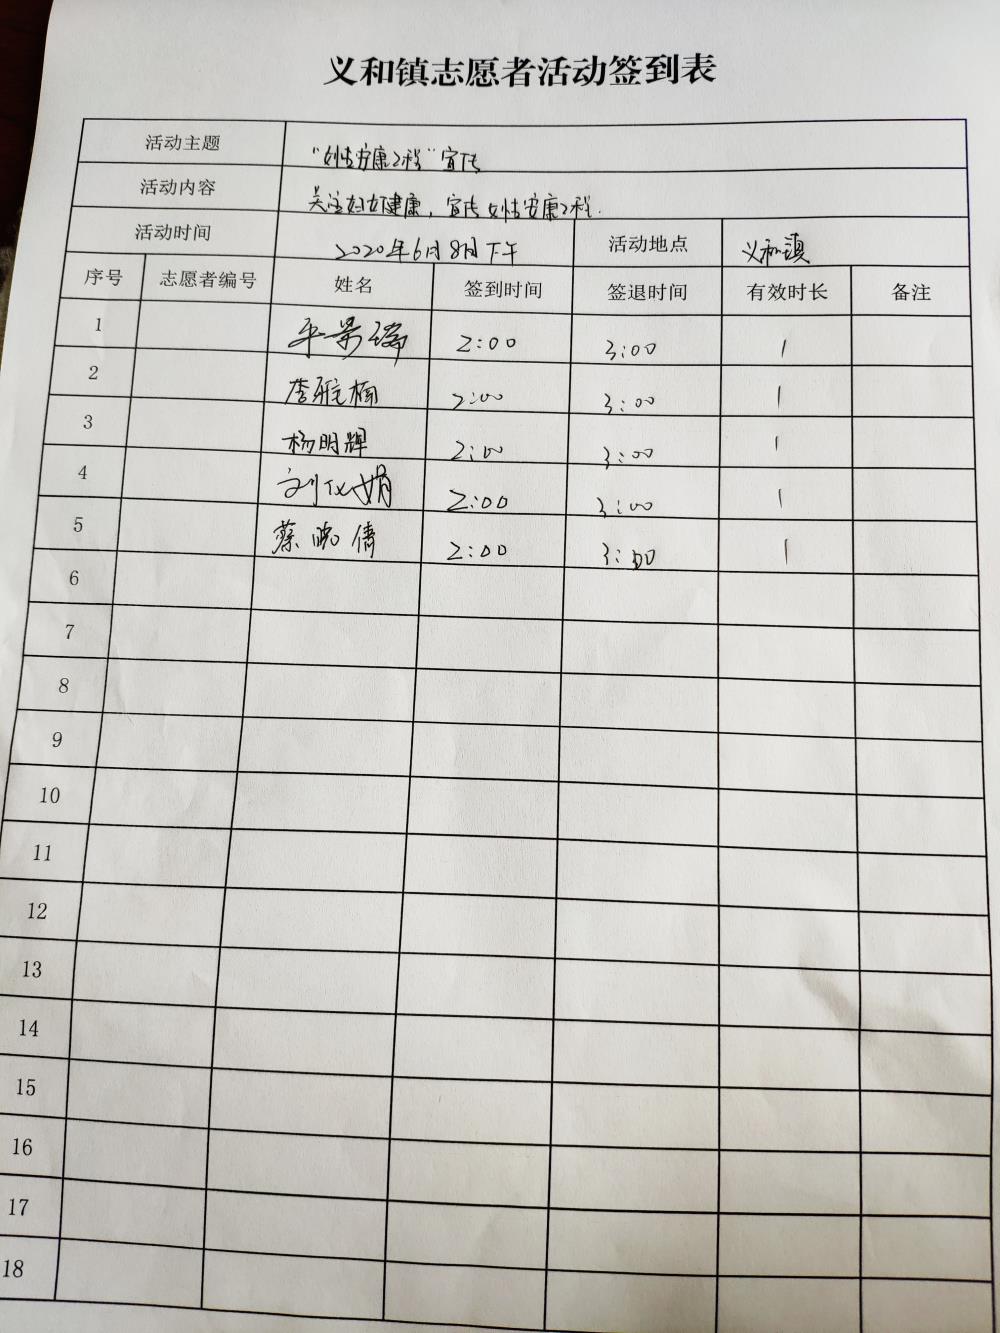 义和镇志愿者活动签到表
活动主题 "女性安康工程"宣传
活动内容 关注妇女健康，宣传女性安康工程.
活动时间 2020年6月8日下午 活动地点 义和镇
序号 志愿者编号 姓名 签到时间 签退时间 有效时长 备注
1 2:00 3:00 1
2 李雅楠 2:00 3:00 1
3 杨明辉 2:00 3:00 1
4 刘仪娟 2:00 3:00 1
5 蔡晓倩 2:00 3:00 1
6
7
8
9
10
11
12
13
14
15
16
17
18